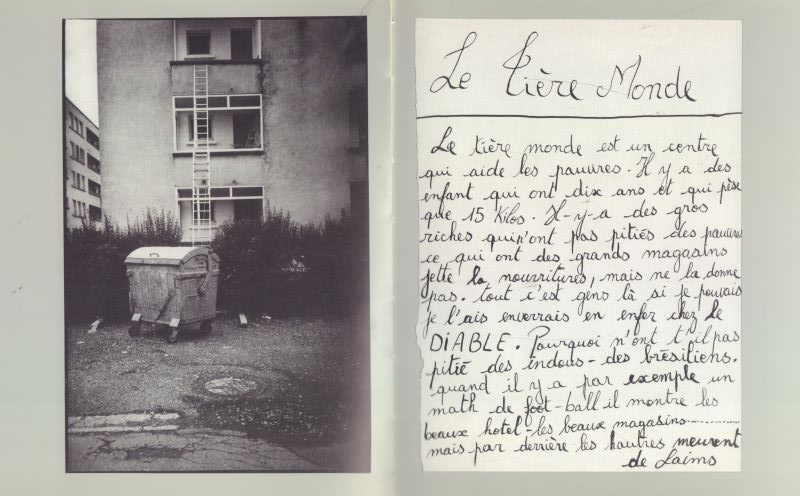 Le tière Monde
Le tière monde est un centre
qui aide les pauvres. Il y a des
enfant qui ont dix ans et qui pèse
que 15 kilos. Il-y-a des gros
riches quip'ont pas pitiés des pauvres
ce qui ont des grands magasins
jette la nourritures, mais ne la donne
pas. tout c'est gens là si je pouvais
je l'ais enverrais en enfer chez le
DIABLE. Pourquoi n'ont t'il pas
pitié des indous - des brésiliens.
quand il y a par exemple un
math de foot-ball il montre les
beaux hotel - les beaux magasins..............
mais par derrière les hautres meurent
de Laims